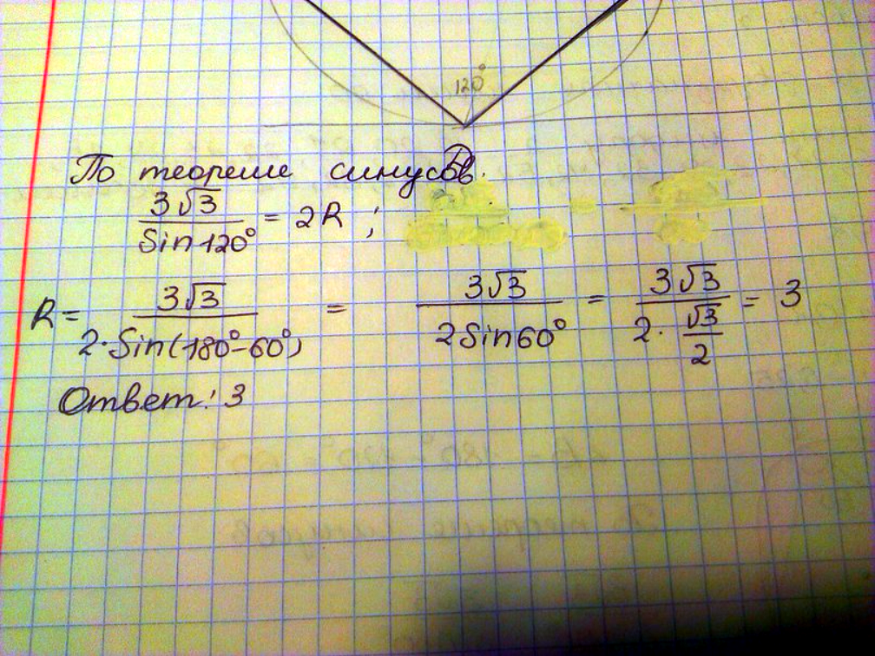 120°
По теореме синусов.
3√3 / Sin 120° = 2R ;
R = 3√3 / 2·Sin(180°-60°) = 3√3 / 2Sin60° = 3√3 / 2·√3/2 = 3
Ответ: 3